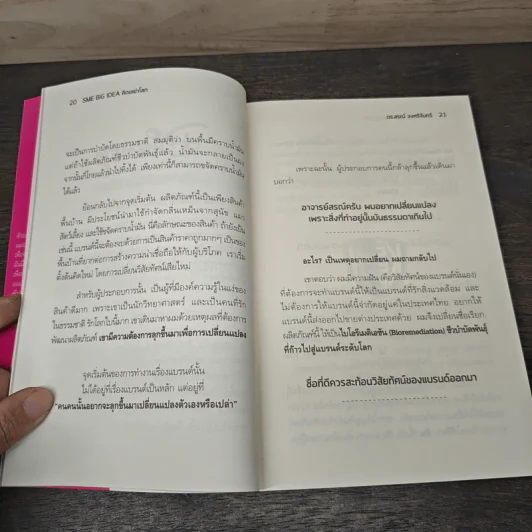 20 SME BIG IDEA คิดเขย่าโลก
จะเป็นการบำบัดโดยธรรมชาติ สมมุติว่า บนพื้นมีคราบน้ำมัน
แต่ถ้าใช้ผลิตภัณฑ์ชีวบำบัดพันธุ์แล้ว น้ำมันจะกลายเป็นผง
จากนั้นก็โกยแล้วนำไปทิ้งได้ เพียงเท่านี้ก็สามารถขจัดคราบน้ำมัน
ได้แล้ว
ย้อนกลับไปจากจุดเริ่มต้น ผลิตภัณฑ์นี้เป็นเพียงสินค้า
พื้นบ้าน มีประโยชน์นำมาใช้กำจัดกลิ่นเหม็นจากสุนัข แมว
สัตว์เลี้ยง และใช้ขจัดคราบน้ำมัน นี่คือลักษณะของสินค้า ถ้ายังเป็น
เช่นนี้ แบรนด์นี้จะต้องจบด้วยการเป็นสินค้าราคาถูกมากๆ เป็นของ
พื้นบ้านที่ยากต่อการสร้างความน่าเชื่อถือให้กับผู้บริโภค เราเริ่ม
ตั้งต้นคิดใหม่ โดยการเปลี่ยนวิสัยทัศน์เสียใหม่
สำหรับผู้ประกอบการนั้น เป็นผู้ที่มีองค์ความรู้ในแง่ของ
สินค้าดีมาก เพราะเขาเป็นนักวิทยาศาสตร์ และเป็นคนที่รัก
ในธรรมชาติ รักโลกใบนี้มาก เขาเดินมาหาผมด้วยเหตุผลที่ต้องการ
พัฒนาผลิตภัณฑ์ เขามีความต้องการลุกขึ้นมาเพื่อการเปลี่ยนแปลง
จุดเริ่มต้นของการทำงานเรื่องแบรนด์นั้น
ไม่ได้อยู่ที่เรื่องแบรนด์เป็นหลัก แต่อยู่ที่
"คนคนนั้นอยากจะลุกขึ้นมาเปลี่ยนแปลงตัวเองหรือเปล่า"
ดร.สรณ์ จงศรีจันทร์ 21
เพราะฉะนั้น ผู้ประกอบการคนนี้กล้าลุกขึ้นแล้วเดินมา
บอกว่า
อาจารย์สรณ์ครับ ผมอยากเปลี่ยนแปลง
เพราะสิ่งที่ทำอยู่นั้นมันธรรมดาเกินไป
อะไร? เป็นเหตุอยากเปลี่ยน ผมถามกลับไป
เขาตอบว่า ผมมีความฝัน เดิมวิสัยทัศน์ของแบรนด์นั้นเอง
ที่ต้องการจะทำแบรนด์นี้ให้เป็นแบรนด์ที่รักสิ่งแวดล้อม และ
ไม่ต้องการให้แบรนด์นี้จำกัดอยู่แค่ในประเทศไทย อยากให้
แบรนด์นี้ส่งออกไปขายต่างประเทศด้วย ผมจึงเปลี่ยนชื่อเรียก
ผลิตภัณฑ์นี้ ให้เป็นไบโอรีเมดิเอชัน (Bioremediation) ชีวบำบัดพันธุ์
ที่ก้าวไปสู่แบรนด์ระดับโลก
ชื่อที่ดีควรสะท้อนวิสัยทัศน์ของแบรนด์ออกมา